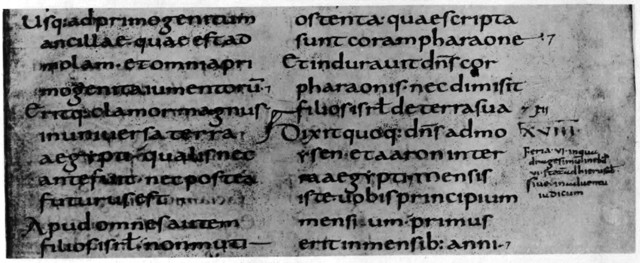 Usq· ad primogenitum
ancillae· quae est ad
molam· et omnia pri
mogenita iumentorū·
Eritq· clamor magnus·
in universa terra
aegypti· qualis nec
ante fuit· nec postea
futurus est
Apud omnes autem
filios isrl· non muti
ostenta· quae scripta
sunt coram pharaone
Et induravit dn̄s cor
pharaonis· nec dimisit
filios isrl̄ de terra sua
Dixit quoq· dn̄s ad mo
ysen· et aaron in ter
ra aegypti· mensis
iste· vobis principium
mensium· primus
erit in mensib· anni·
XVIII
Feria· VI·